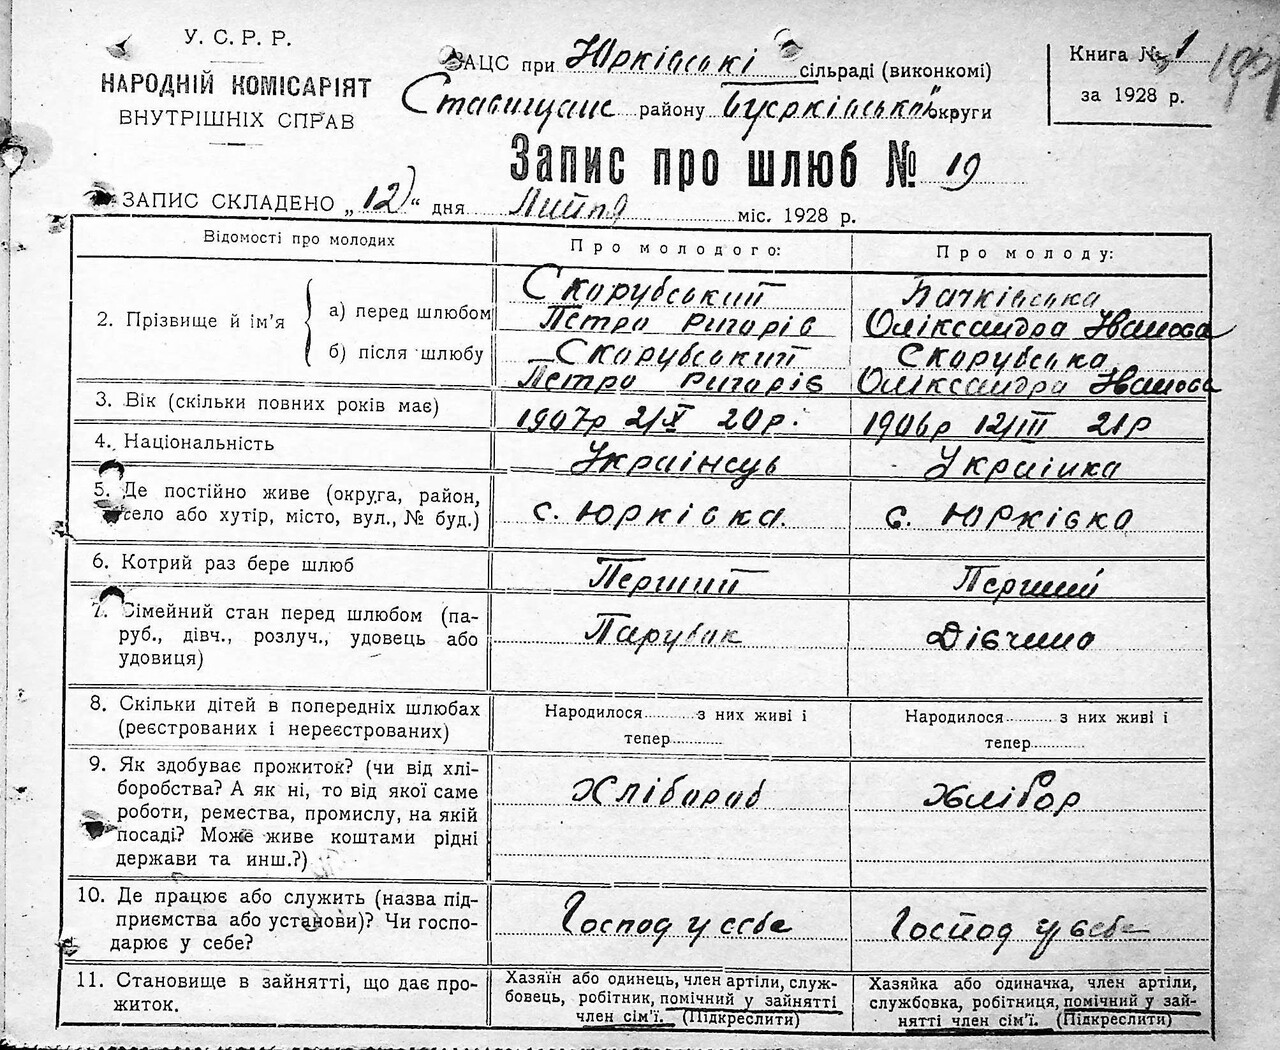 У. С. Р. Р.
НАРОДНІЙ КОМІСАРІЯТ
ВНУТРІШНІХ СПРАВ
ЗАЦС при Юрківські сільраді (виконкомі)
Ставищанс району округи
Книга № 1
за 1928 р.
Запис про шлюб № 19
ЗАПИС СКЛАДЕНО „12" дня Липня міс. 1928 р.
Відомості про молодих Про молодого: Про молоду:
2. Прізвище й ім'я
а) перед шлюбом Скорубський
Пєтро Ригорів Оліксандра Іванова
б) після шлюбу Скорубський Скорубська
Пєтро Ригорів Оліксандра Іванова
3. Вік (скільки повних років має) 1907р 2/X 20р. 1906р 12/III 21р
4. Національність Українець Українка
5. Де постійно живе (округа, район,
село або хутір, місто, вул., № буд.) с. Юрківка с. Юрківка
6. Котрий раз бере шлюб Перший Перший
7. Сімейний стан перед шлюбом (па-
руб., дівч., розлуч., удовець або Парубак Дівчина
удовиця)
8. Скільки дітей в попередніх шлюбах Народилося з них живі і Народилося з них живі і
(реєстрованих і нереєстрованих) тепер тепер
9. Як здобуває прожиток? (чи від хлі-
боробства? А як ні, то від якої саме Хлібараб Хлібор
роботи, ремества, промислу, на якій
посаді? Може живе коштами рідні
держави та инш.?)
10. Де працює або служить (назва під-
приємства або установи)? Чи госпо- Господ у себе Господ у себе
дарює у себе?
11. Становище в зайнятті, що дає про-
житок.
Хазяїн або одинець, член артіли, служ-
бовець, робітник, помічний у зайнятті
член сім'ї. (Підкреслити)
Хазяйка або одиначка, член артіли,
службовка, робітниця, помічний у зай-
нятті член сім'ї. (Підкреслити)